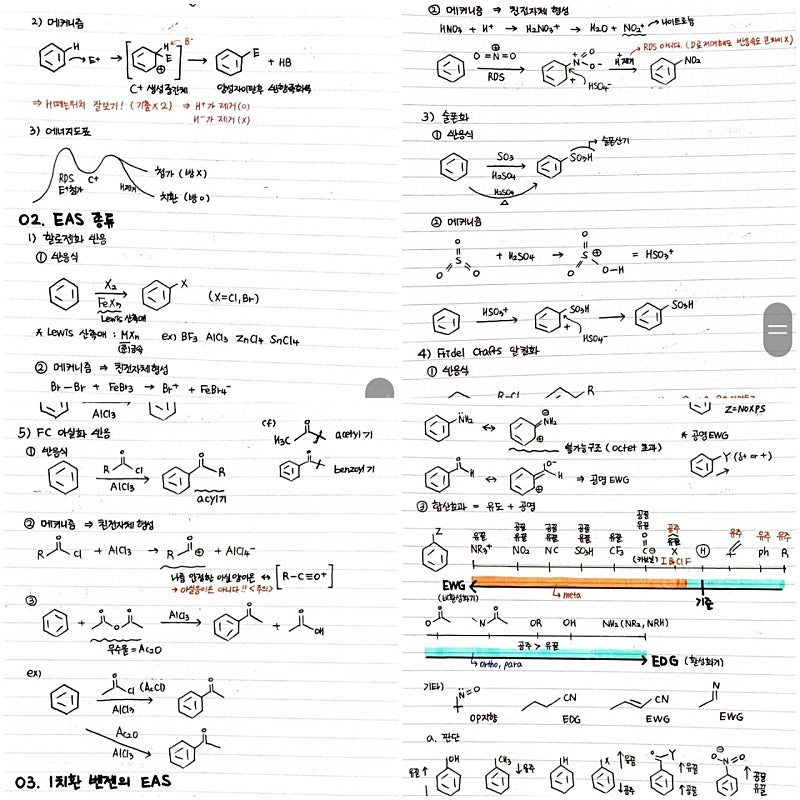 2) 메커니즘
H
E⁺
H
E
B⁻
E
+ HB
C+ 생성중간체
⇒ H떼는위치 잘보기! (기출 X 2) ⇒ H⁺가 제거 (O)
H⁻가 제거 (X)
3) 에너지도표
RDS
E⁺첨가
C+
H제거
첨가 (방 X)
치환 (방 O)
02. EAS 종류
1) 할로젠화 반응
① 반응식
X₂
FeX₃
Lewis 산촉매
X
(X=Cl, Br)
* Lewis 산촉매 : MXn ex) BF₃ AlCl₃ ZnCl₄ SnCl₄
(준)금속
② 메커니즘 ⇒ 친전자체 형성
Br-Br + FeBr₃ → Br⁺ + FeBr₄⁻
AlCl₃
5) FC 아실화 반응
① 반응식
R Cl
AlCl₃
R
acyl기
(cf)
H₃C
acetyl기
benzoyl기
② 메커니즘 ⇒ 친전자체 형성
R Cl + AlCl₃ → R ⊕ + AlCl₄⁻
나름 안정한 아실양이온 ↔ [R-C≡O⁺]
→ 아실음이온 아니다!! <주의>
③
+ O AlCl₃ + OH
무수물 = Ac₂O
ex)
Cl (AcCl)
AlCl₃
Ac₂O
AlCl₃
03. 1치환 벤젠의 EAS
② 메커니즘 ⇒ 친전자체 형성
HNO₃ + H⁺ → H₂NO₃⁺ → H₂O + NO₂⁺ → 나이트로늄
O=N=O
RDS
H 제거
RDS 아니다. (D로 치환해도 반응속도 큰차이X)
HSO₄⁻
NO₂
3) 술폰화
① 반응식
SO₃
H₂SO₄
SO₃H
술폰산기
H₂SO₄
△
② 메커니즘
+ H₂SO₄ → O-H = HSO₃⁺
HSO₃⁺
SO₃H
HSO₄⁻
SO₃H
4) Fridel Crafts 알킬화
① 반응식
R-Cl
R
Z=NOXPS
* 공명 EWG
NH₂ ↔ NH₂
불가능구조 (octet 초과)
Y (δ+ or +)
H ↔ H ⇒ 공명 EWG
③ 합산효과 = 유도 + 공명
Z
NR₃⁺ NO₂ NC SO₃H CF₃ C X H ph R
I Br Cl F
EWG
(비활성화기)
meta
기준
OR OH NH₂ (NR₂, NRH)
공주 > 유끌
ortho, para
EDG (활성화기)
기타)
N=O
OP지향
CN
EDG
CN
EWG
N
EWG
a. 판단
OH
CH₃
H
X
Y